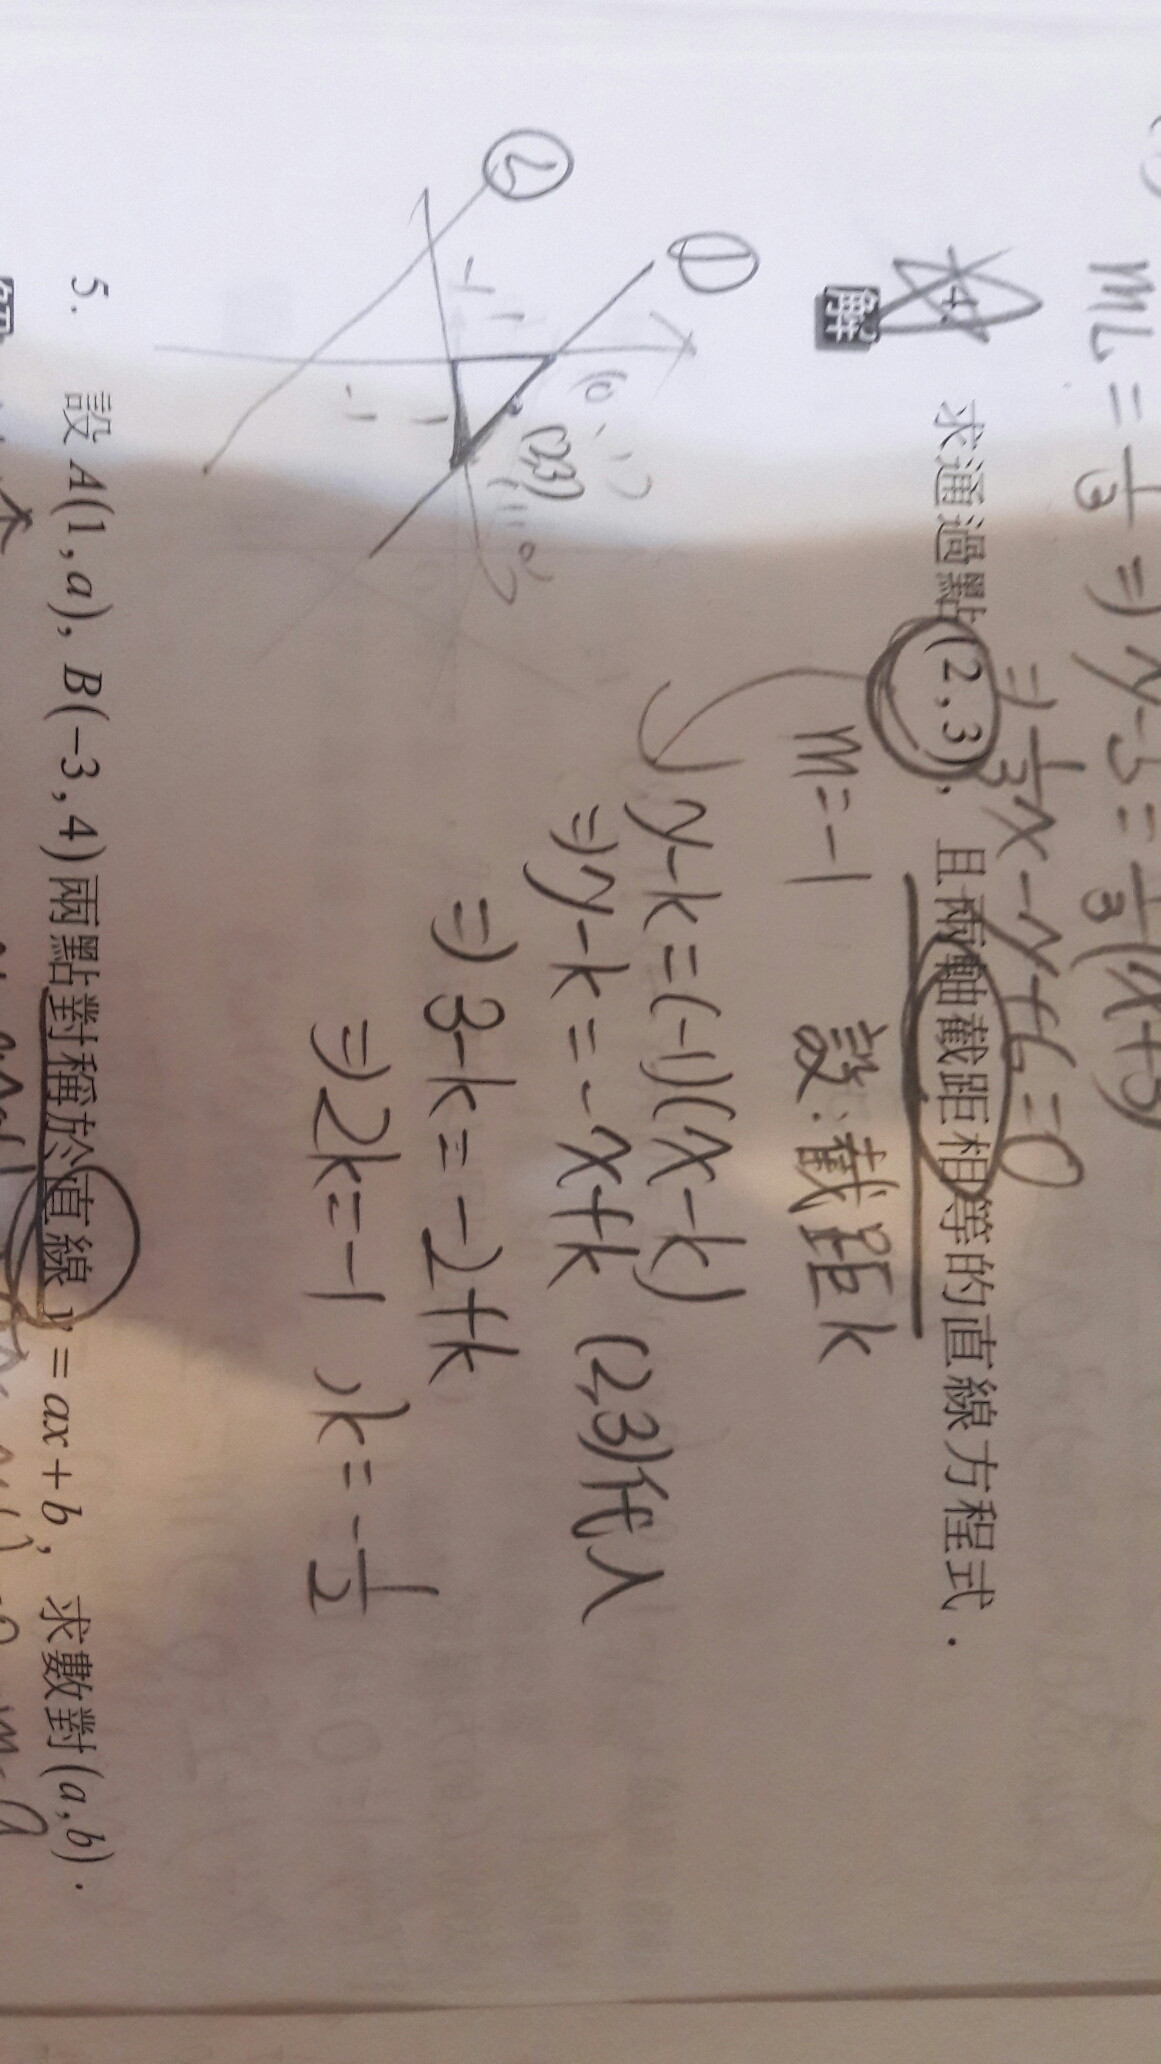 m_L = 1/3 ⇒ y-5 = 1/3(x+3)
⇒ 1/3x-y+6=0
4. 求通過點(2,3)，且兩軸截距相等的直線方程式．
解
m=-1 設:截距k
y-k=(-1)(x-k)
⇒y-k=-x+k (2,3)代入
⇒3-k=-2+k
⇒2k=-1, k=-1/2
①
(0,1)
(2,3)
(1,0)
-1
1
1
-1
②
5. 設A(1,a), B(-3,4)兩點對稱於直線y=ax+b，求數對(a,b)．
解